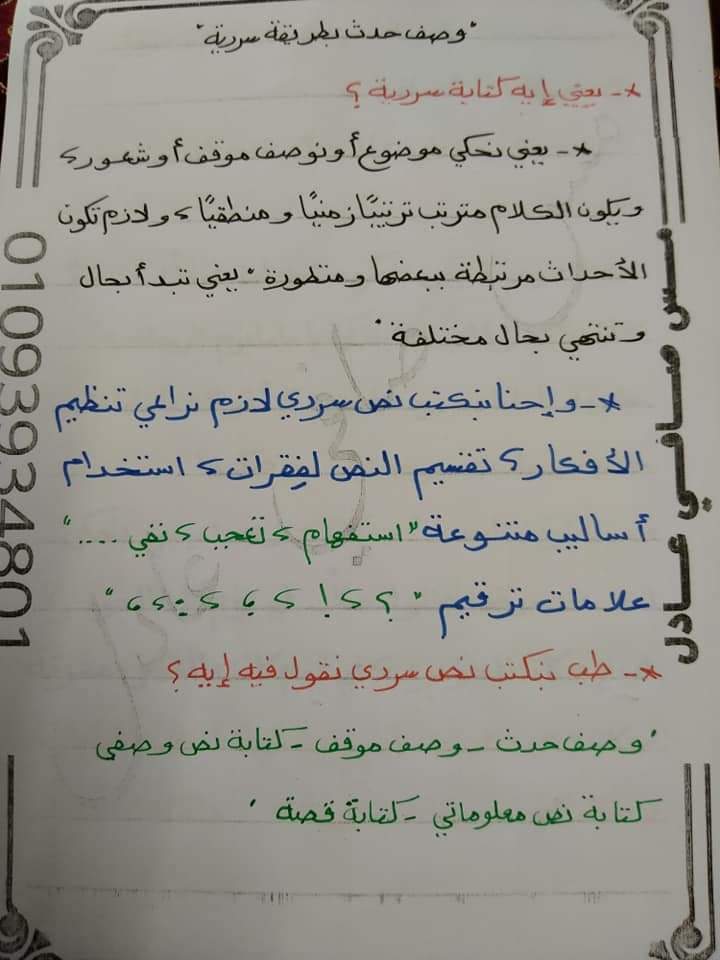 "وصف حدث بطريقة سردية"
*- يعني إيه كتابة سردية ؟
*- يعني نحكي موضوع أو نوصف موقف أو شعور ،
ويكون الكلام مترتب ترتيبًا زمنيًا ومنطقيًا ، ولازم تكون
الأحداث مرتبطة ببعضها ومتطورة " يعني تبدأ بحال
وتنتهي بحال مختلفة "
*- وإحنا بنكتب نص سردي لازم نراعي تنظيم
الأفكار ، تقسيم النص لفقرات ، استخدام
أساليب متنوعة "استفهام ، تعجب ، نفي ...."
علامات ترقيم " ؟ ، ! ، ؛ ، : ، ،، "
*- طب بنكتب نص سردي نقول فيه إيه ؟
' وصف حدث - وصف موقف - كتابة نص وصفي
كتابة نص معلوماتي - كتابة قصة '
مس صافي عادل
01093934801